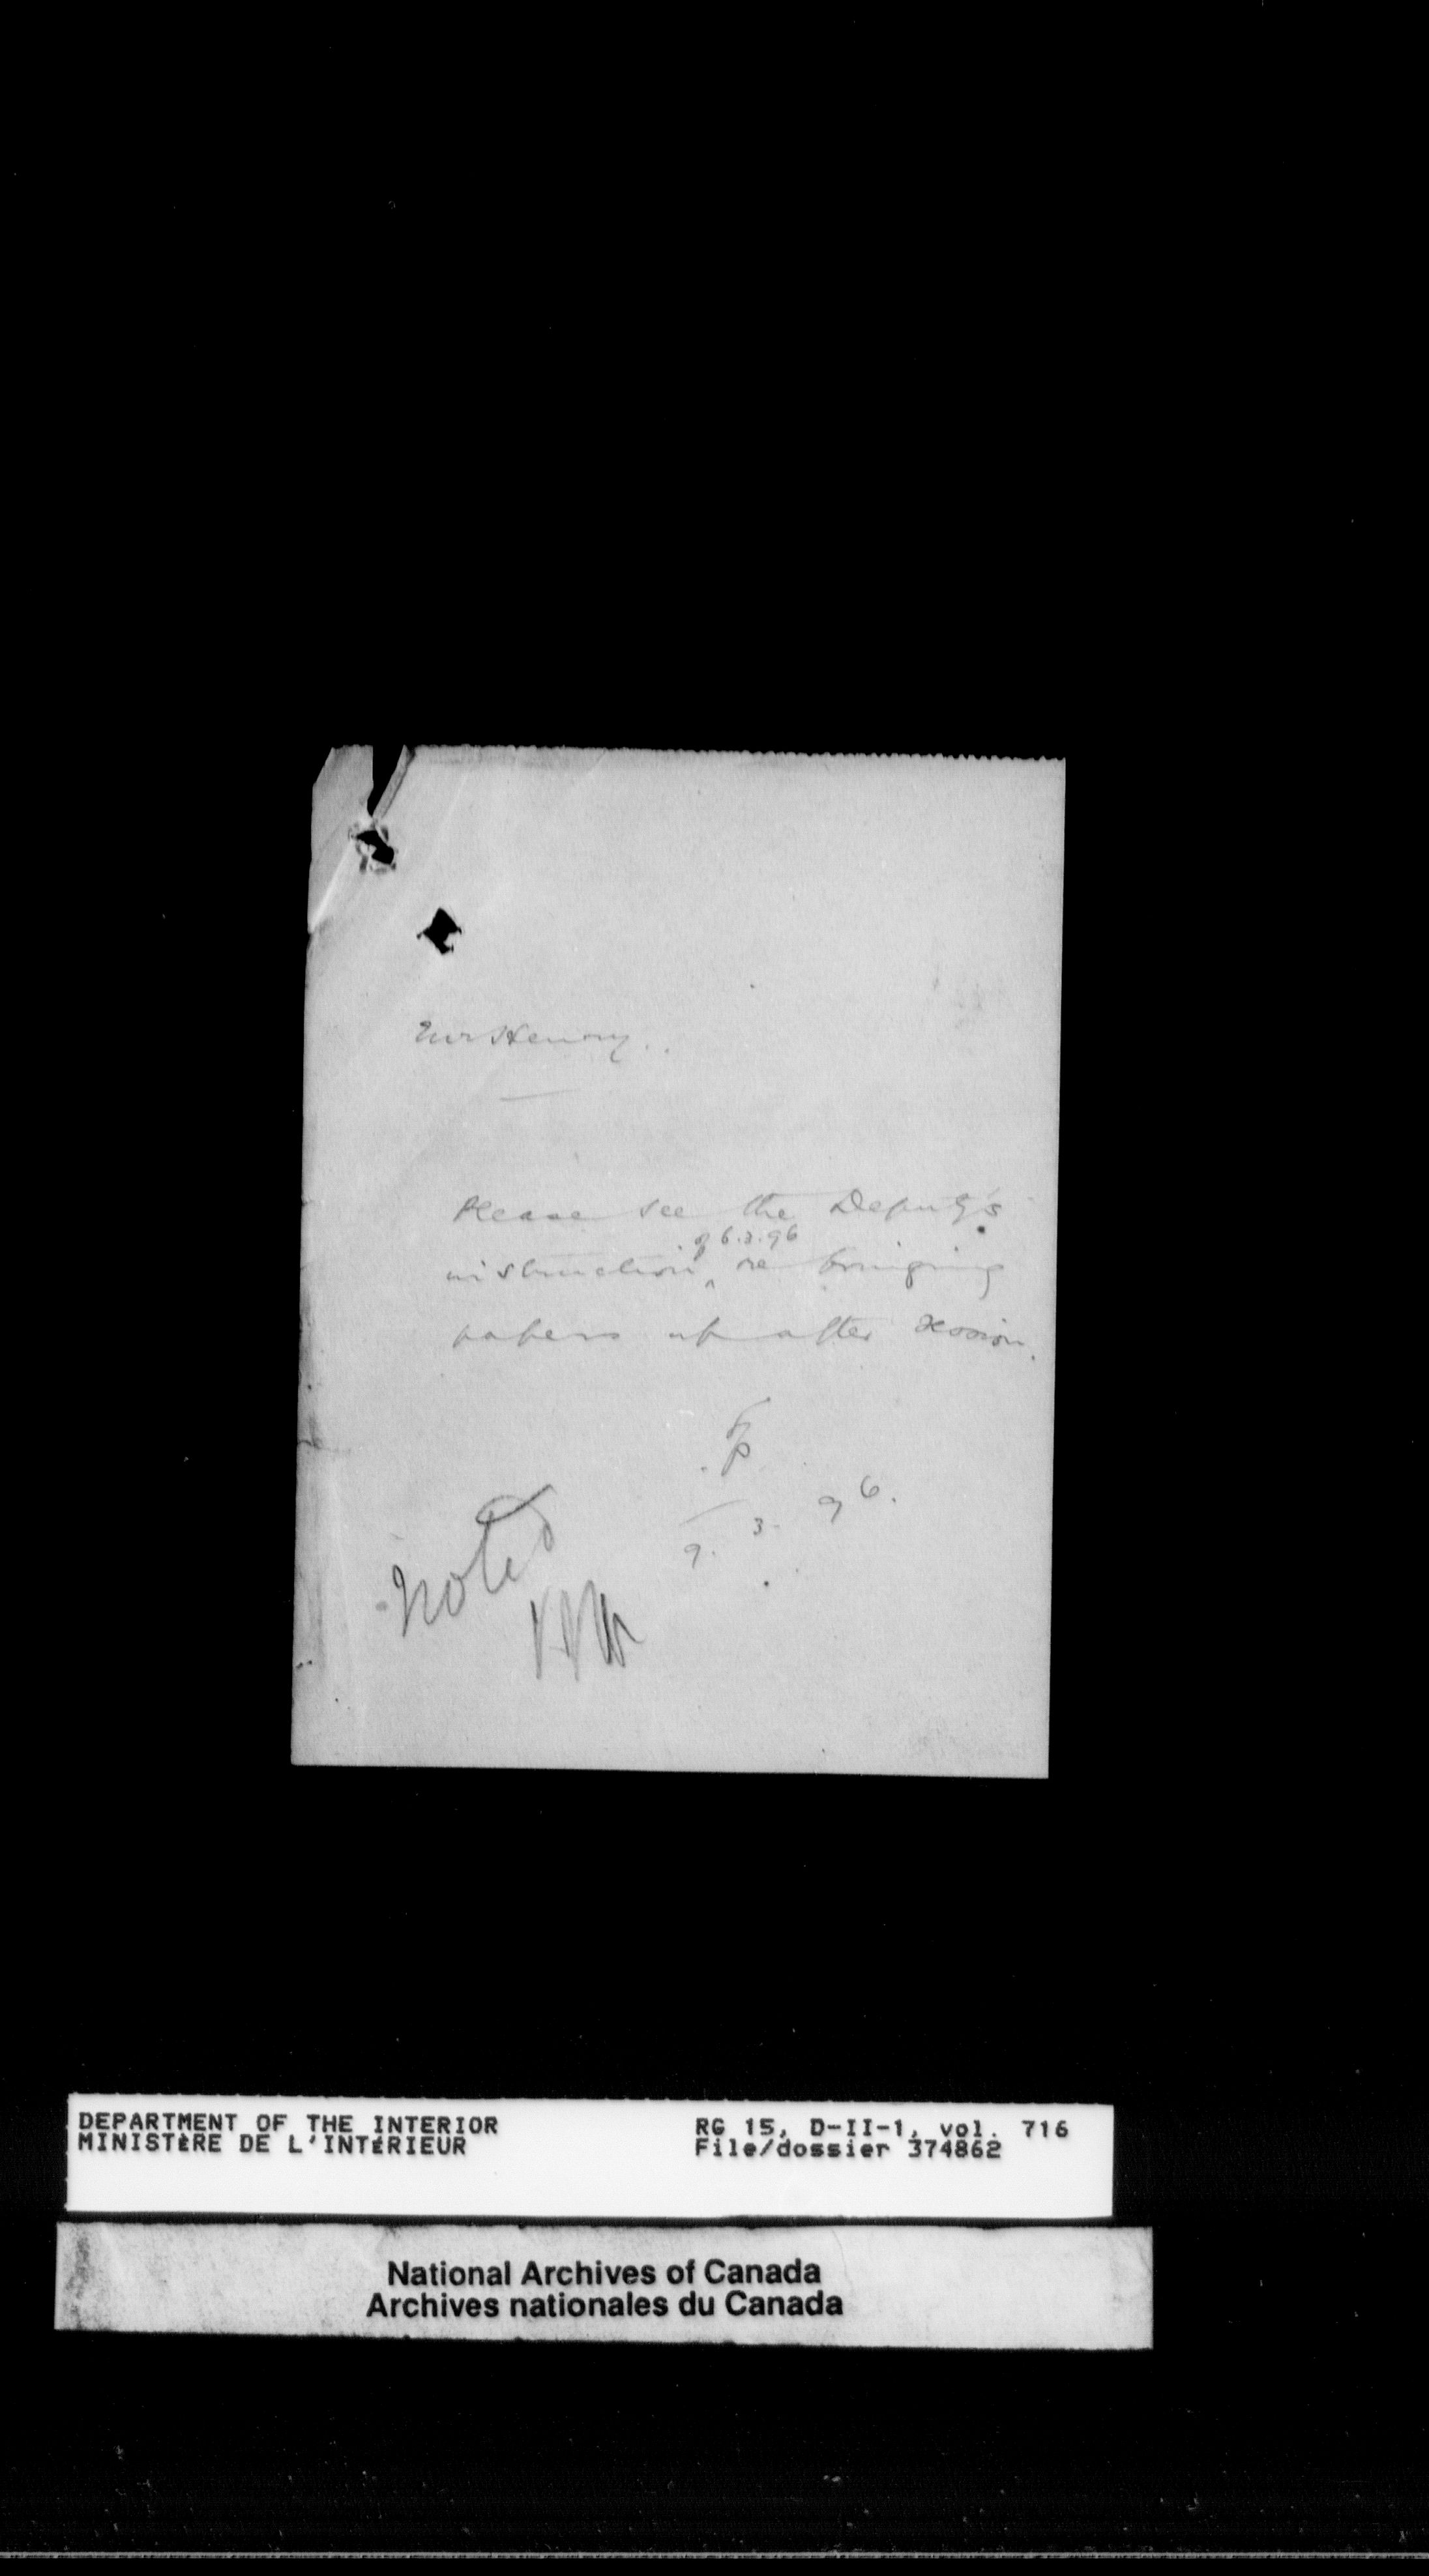 Mr Henry.
Please see the Deputy's
of 6.3.96
instruction ^ re bringing
papers up after session.
9. 3. 96.
Noted
DEPARTMENT OF THE INTERIOR
MINISTÈRE DE L'INTÉRIEUR
RG 15, D-II-1, vol. 716
File/dossier 374862
National Archives of Canada
Archives nationales du Canada